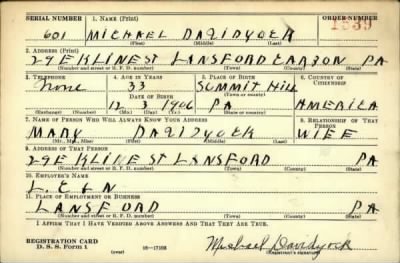 SERIAL NUMBER 1. NAME (Print) ORDER NUMBER
601 MICHAEL DAVIDYOCK 1539
(First) (Middle) (Last)
2. ADDRESS (Print)
29 E KLINE ST LANSFORD CARBON PA
(Number and street or R. F. D. number) (Town) (County) (State)
3. TELEPHONE 4. AGE IN YEARS 5. PLACE OF BIRTH 6. COUNTRY OF CITIZENSHIP
None 33 SUMMIT HILL
DATE OF BIRTH (Town or county)
12 3 1906 PA AMERICA
(Exchange) (Number) (Mo.) (Day) (Yr.) (State or country)
7. NAME OF PERSON WHO WILL ALWAYS KNOW YOUR ADDRESS 8. RELATIONSHIP OF THAT PERSON
MARY DAVIDYOCK WIFE
(Mr., Mrs., Miss) (First) (Middle) (Last)
9. ADDRESS OF THAT PERSON
29 E KLINE ST LANSFORD PA
(Number and street or R. F. D. number) (Town) (County) (State)
10. EMPLOYER'S NAME
L. C & N
11. PLACE OF EMPLOYMENT OR BUSINESS
LANSFORD PA
(Number and street or R. F. D. number) (Town) (County) (State)
I AFFIRM THAT I HAVE VERIFIED ABOVE ANSWERS AND THAT THEY ARE TRUE.
REGISTRATION CARD
D. S. S. Form 1 (over) 16—17105 Michael Davidyock
(Registrant's signature)